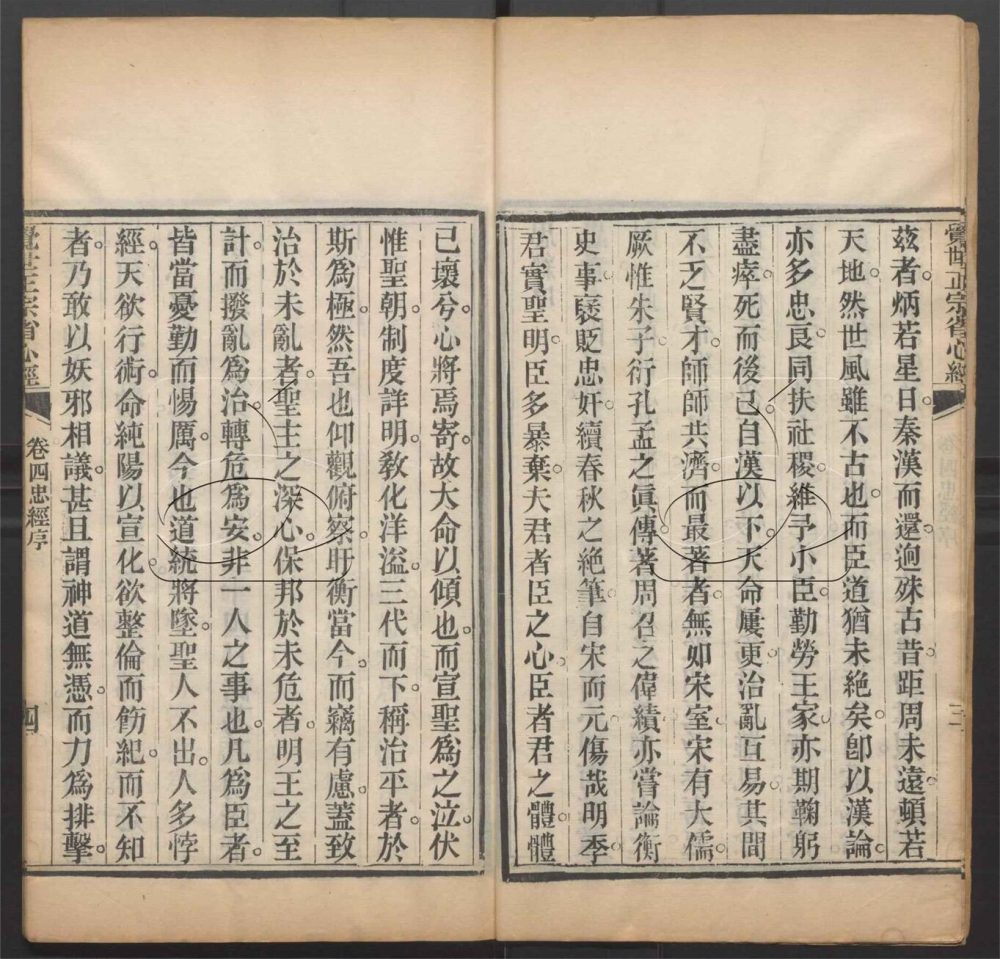 覺世正宗省心經
三
茲者。炳若星日。秦漢而還。逈殊古昔。距周未遠。頓若
天地。然世風雖不古也。而臣道猶未絶矣。卽以漢論。
亦多忠良。同扶社稷。維予小臣。勤勞王家。亦期鞠躬
盡瘁。死而後已。自漢以下。天命屢更。治亂互易。其間
不乏賢才。師師共濟。而最著者。無如宋室。宋有大儒。
厥惟朱子。衍孔孟之眞傳。著周召之偉績。亦嘗論衡
史事。襃貶忠奸。續春秋之絶筆。自宋而元。傷哉明季。
君實聖明。臣多暴棄。夫君者臣之心。臣者君之體。體
已壞兮。心將焉寄。故大命以傾也。而宣聖爲之泣。伏
惟聖朝。制度詳明。敎化洋溢。三代而下。稱治平者。於
斯爲極。然吾也仰觀俯察。盱衡當今。而竊有慮。蓋致
治於未亂者。聖主之深心。保邦於未危者。明王之至
計。而撥亂爲治。轉危爲安。非一人之事也。凡爲臣者。
皆當憂勤而惕厲。今也道統將墜。聖人不出。人多悖
經。天欲行術。命純陽以宣化。欲整倫而飭紀。而不知
者。乃敢以妖邪相議。甚且謂神道無憑。而力爲排擊。
覺世正宗省心經
卷四忠經序
四